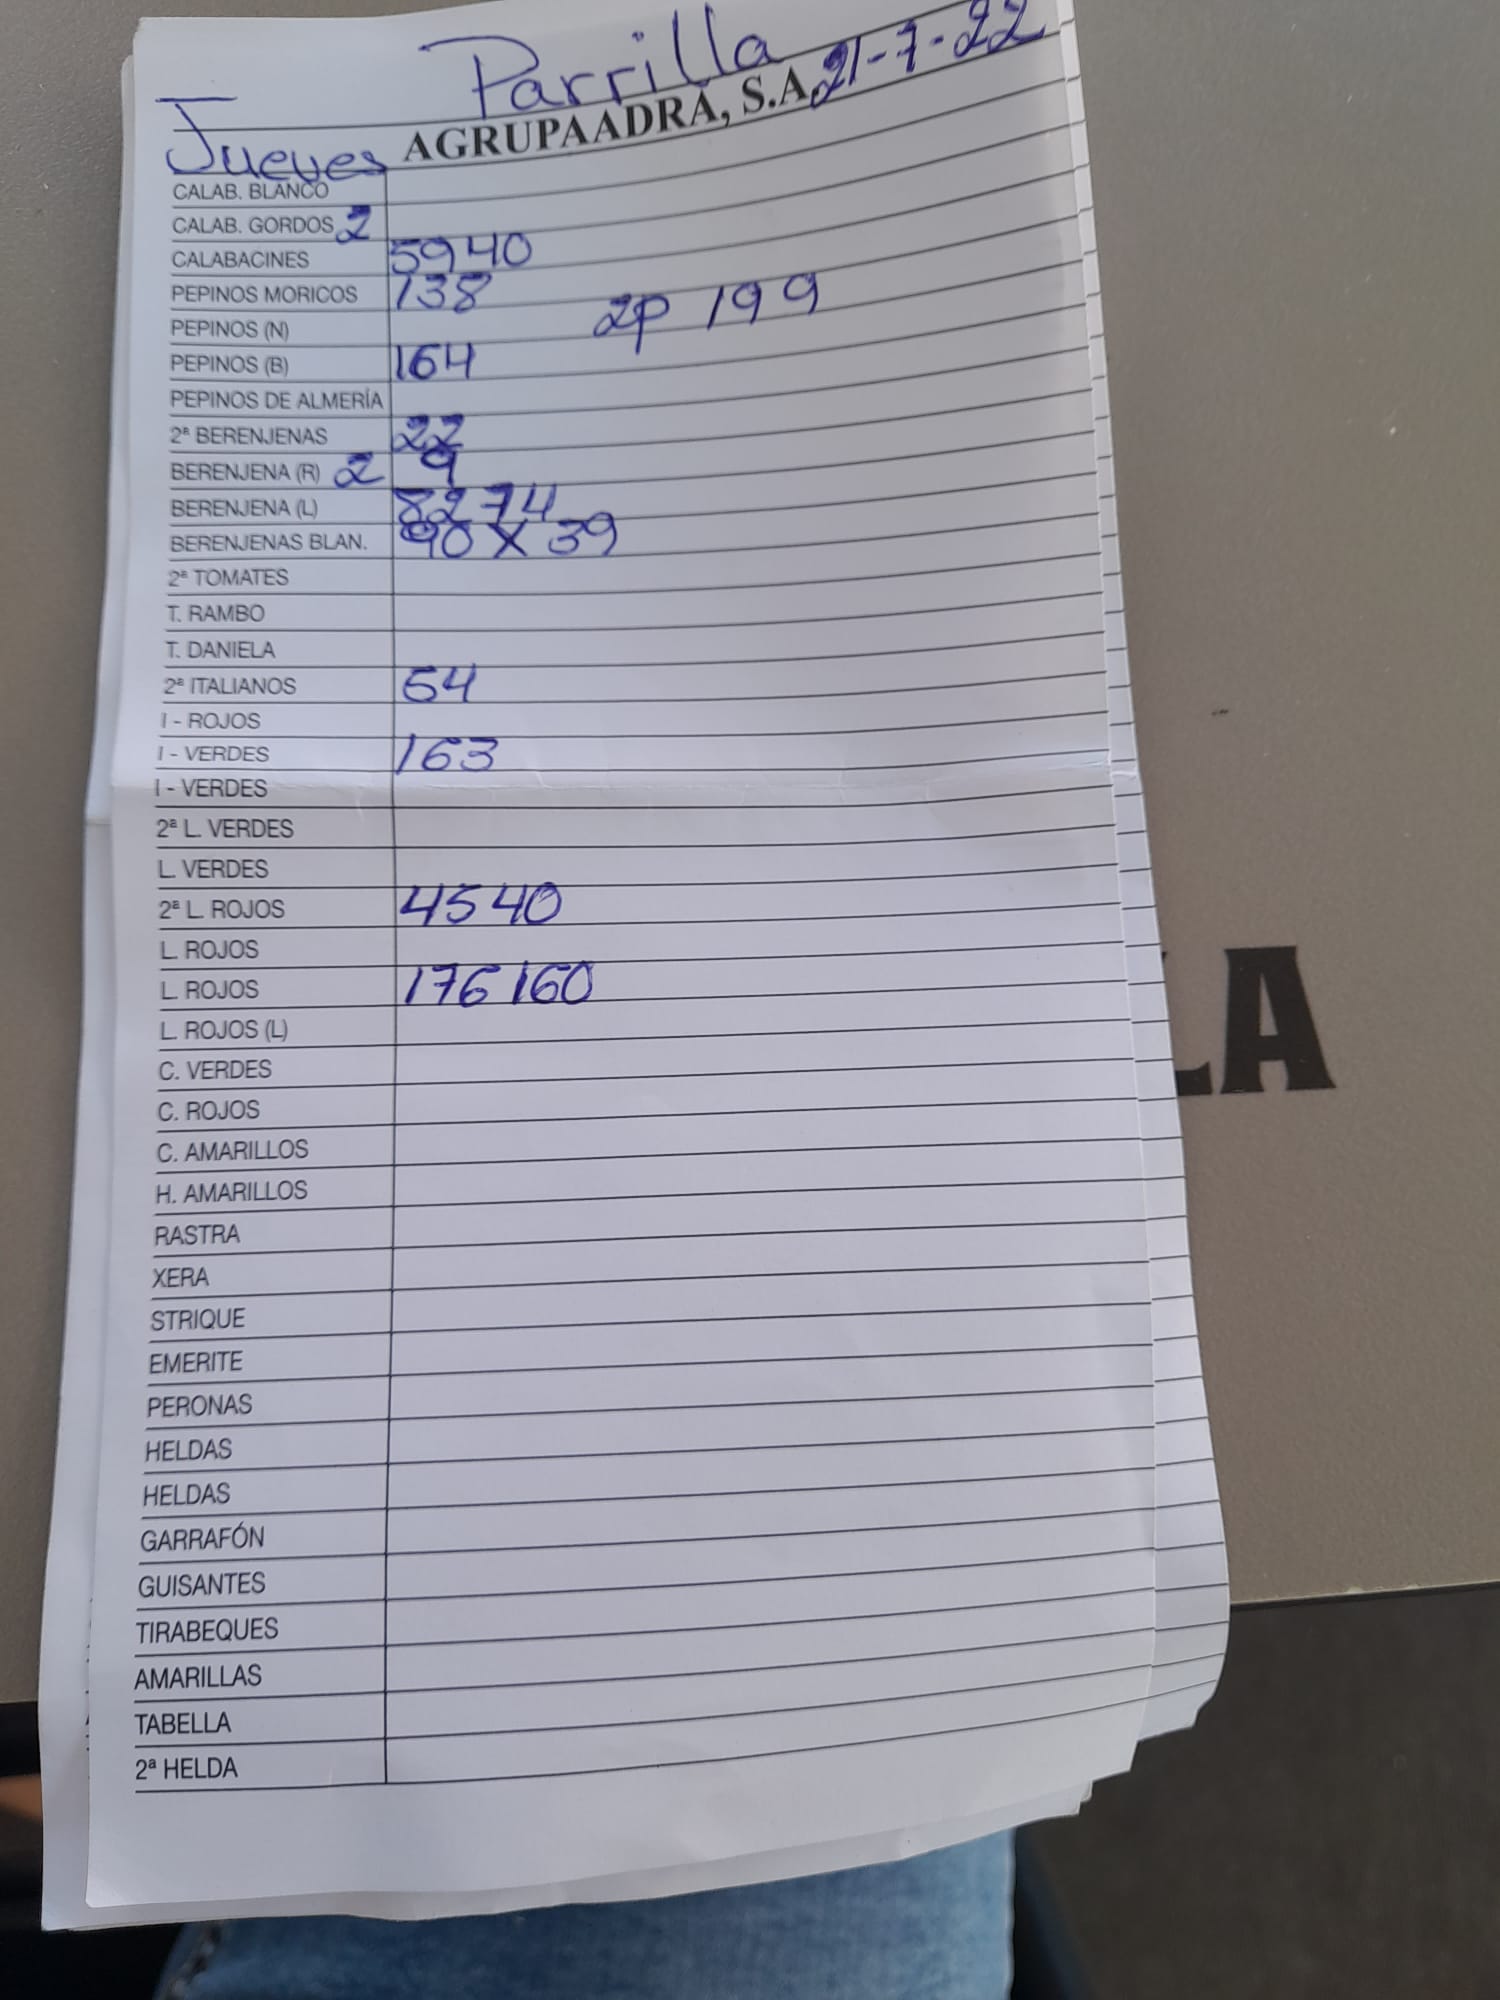 Parrilla 21-7-22
Jueves AGRUPAADRA, S.A.
CALAB. BLANCO
CALAB. GORDOS 2
CALABACINES 5940
PEPINOS MORICOS 138
PEPINOS (N) 2p 199
PEPINOS (B) 164
PEPINOS DE ALMERÍA
2ª BERENJENAS 22
BERENJENA (R) 2 9
BERENJENA (L) 8274
BERENJENAS BLAN. 90 X 39
2ª TOMATES
T. RAMBO
T. DANIELA
2ª ITALIANOS 54
I - ROJOS
I - VERDES 163
I - VERDES
2ª L. VERDES
L. VERDES
2ª L. ROJOS 4540
L. ROJOS
L. ROJOS 176 160
L. ROJOS (L)
C. VERDES
C. ROJOS
C. AMARILLOS
H. AMARILLOS
RASTRA
XERA
STRIQUE
EMERITE
PERONAS
HELDAS
HELDAS
GARRAFÓN
GUISANTES
TIRABEQUES
AMARILLAS
TABELLA
2ª HELDA
LA